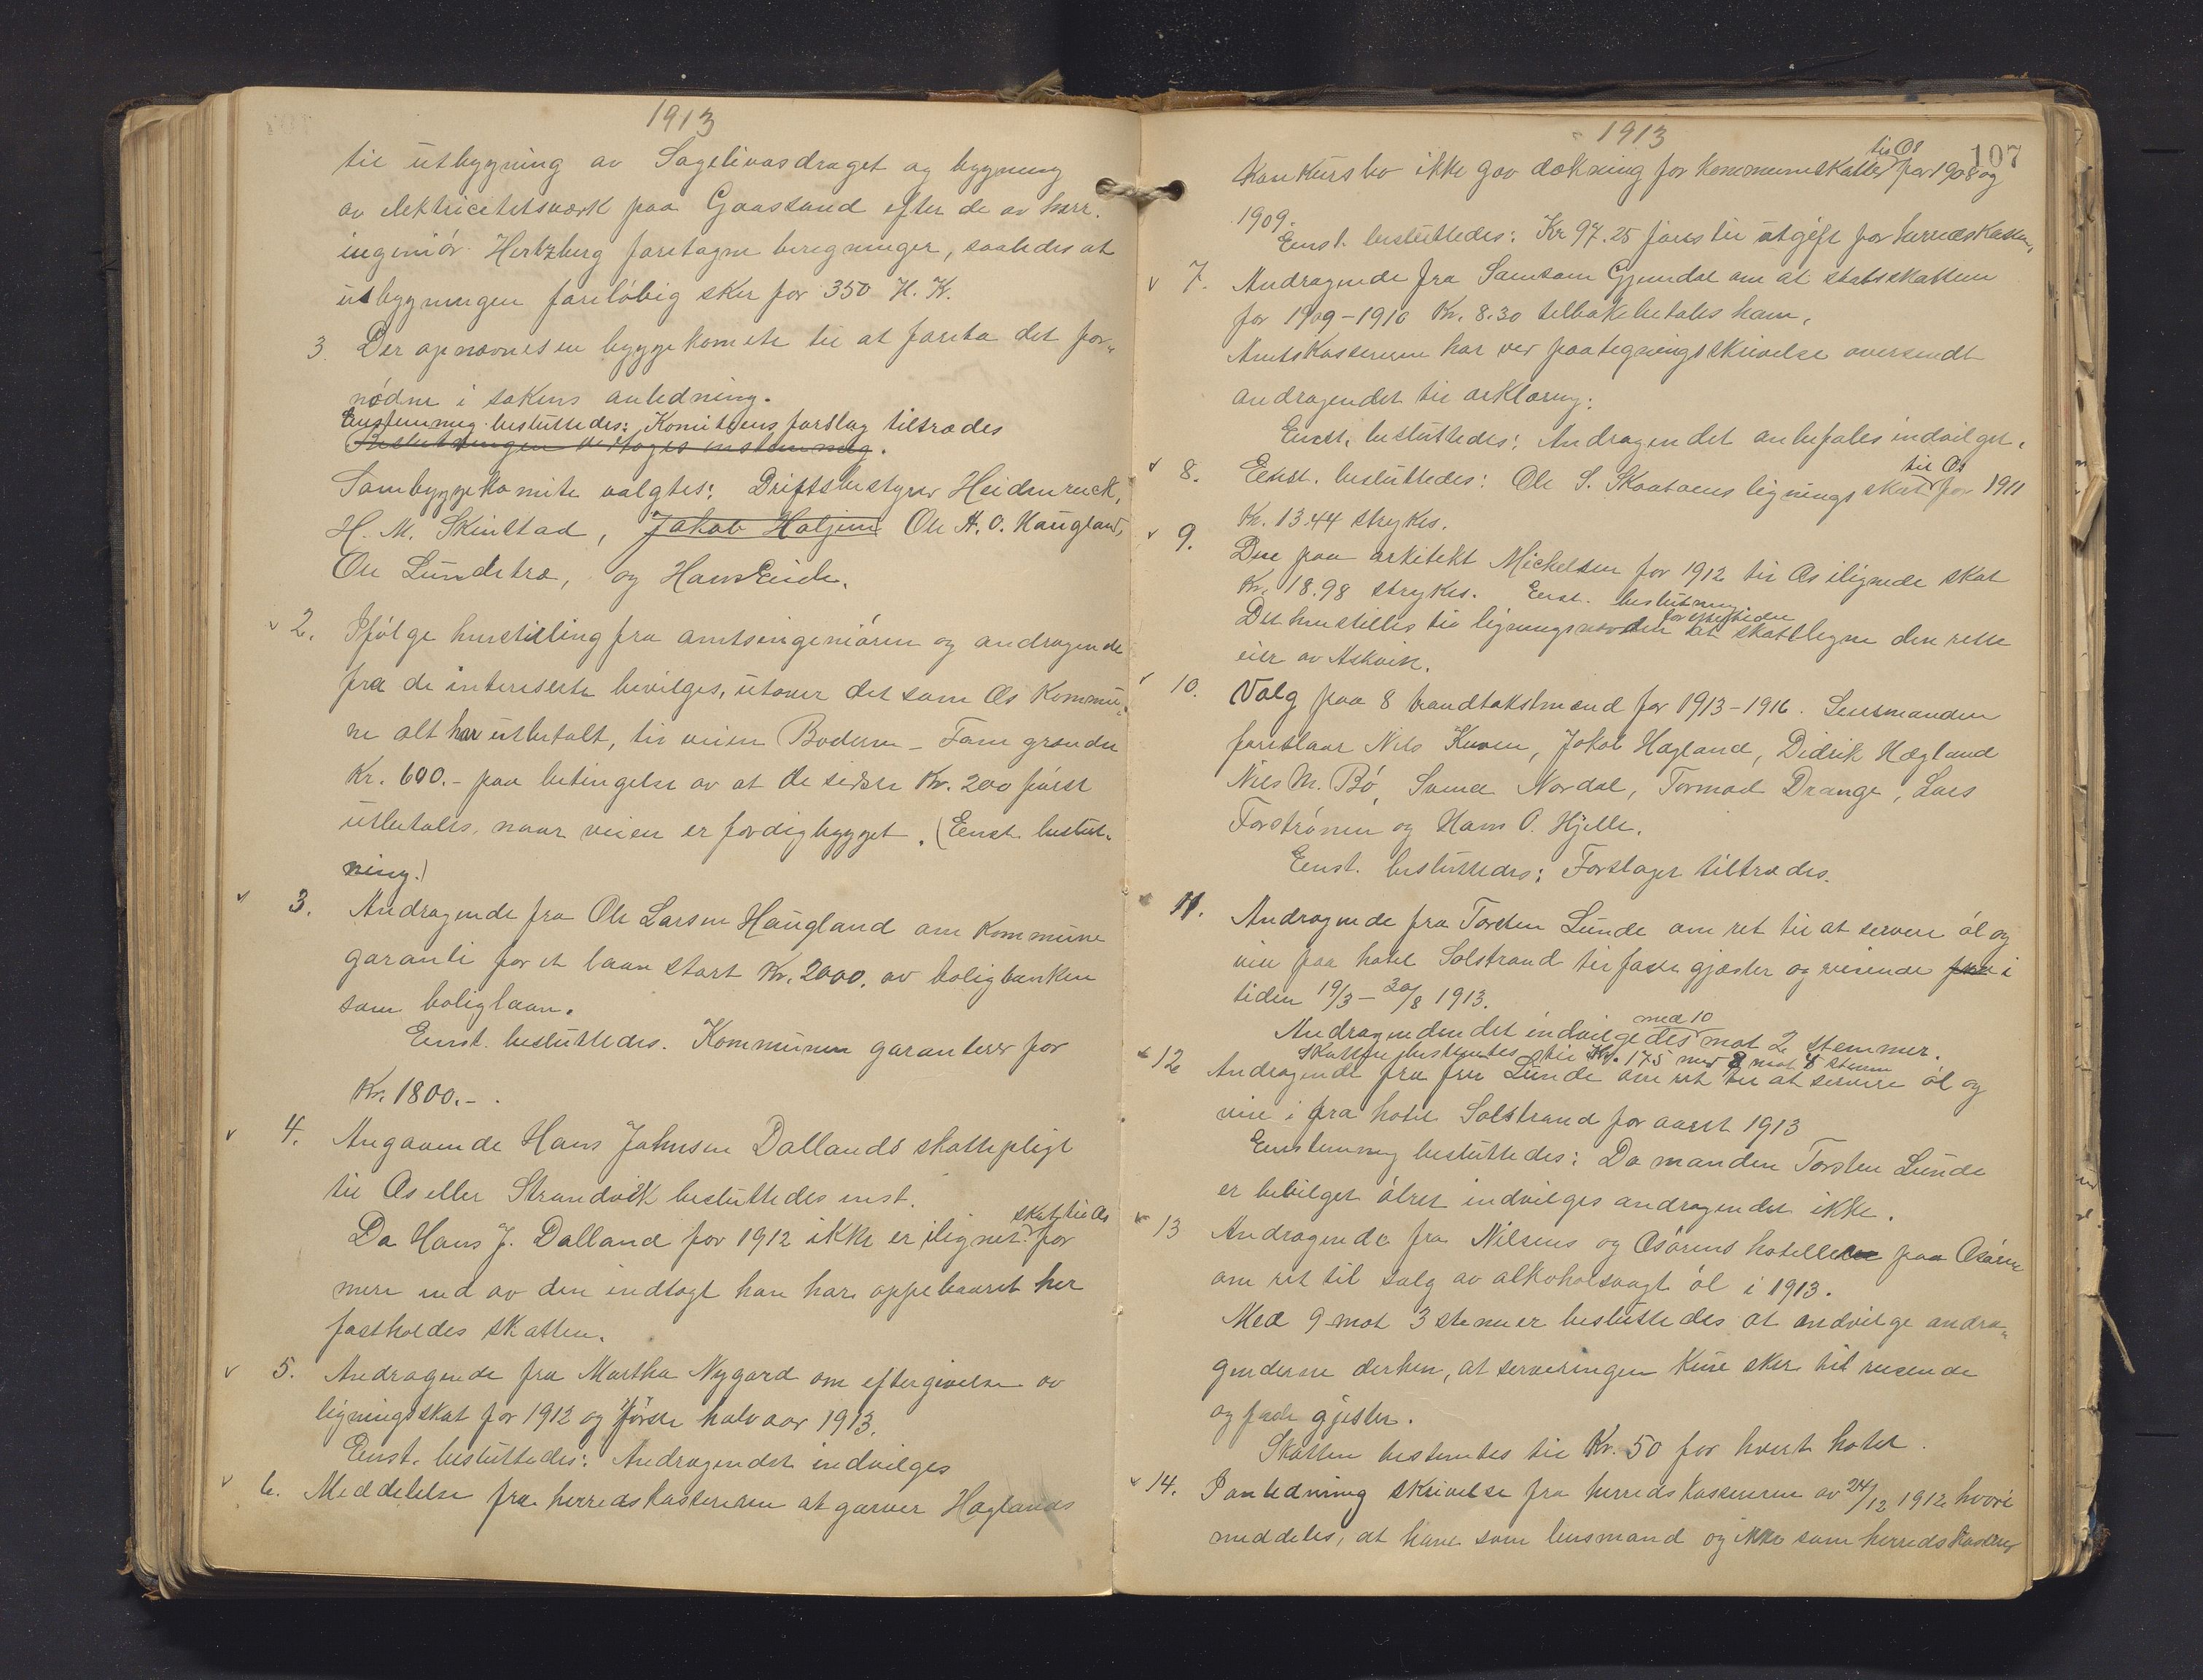 1913
til utbygning av Sagelivasdraget og bygning
av elektricitetsværk paa Gaassand efter de av herr.
ingeniör Hertzberg foretagne beregninger, saaledes at
utbygningen foreløbig sker for 350 H. K.
3. Der opnævnes en byggekomite til at foreta det for-
nödne i sakens anledning.
Enstemmig besluttedes: Komiteens forslag tiltrædes
Beslutningen vedtoges enstemmig.
Som byggekomite valgtes: Driftsbestyrer Heidenreich,
H. M. Skeilstad, Jakob Holjem Ole A. O. Haugland,
Ole Lundetræ, og Hans Eide.
2. Ifölge henstilling fra amtsingeniören og andragende
fra de intereserte bevilges, utover det som Os Kommu-
ne alt har utbetalt, til veien Boderne - Tøm grænden
Kr. 600.- paa betingelse av at de sidste Kr. 200 först
utbetales, naar veien er færdigbygget. (Enst. beslut-
ning.)
3. Andragende fra Ole Larsen Haugland om Kommune
garanti for et laan stort Kr. 2000. av boligbanken
som boliglaan.
Enst. besluttedes. Kommunen garanterer for
Kr. 1800.-.
4. Angaaende Hans Johnsen Dallands skattepligt
til Os eller Strandvik besluttedes enst.
skat til Os
Da Hans J. Dalland for 1912 ikke er ilignet for
mere end av den indtægt han har oppebaaret her
fastholdes skatten.
5. Andragende fra Martha Nygard om eftergivelse av
ligningsskat for 1912 og förste halvaar 1913.
Enst. besluttedes: Andragendet indvilges
6. Meddelelse fra herredskassereren at garver Haglands
1913
107
til Os
Konkursbo ikke gav dækning for kommuneskatter for 1908 og
1909.
Enst. besluttedes: Kr 97.25 föres til utgift for herredskassen,
7. Andragende fra Samson Gjendal om at statsskatten
for 1909-1910 Kr. 8.30 tilbakebetales ham.
Amtskassereren har ved paategningsskrivelse oversendt
andragendet til erklæring.
Enst. besluttedes: Andragendet anbefales indvilget.
til Os
8. Enst. besluttedes: Ole S. Skaatoens ligningsskat for 1911
Kr. 13.44 strykes.
9. Den paa arkitekt Michelsen for 1912 til Os ilignede skat
Kr. 18.98 strykes. Enst. beslutning
for eftertiden
Det henstilles til ligningsnævnden at skattlegne den rette
eier av Askvik.
10. Valg paa 8 brandtakstmænd for 1913-1916. Lensmanden
foreslaar Nils Kuven, Jakob Hagland, Didrik Hægland
Nils M. Bö, Svend Nordal, Tormod Drange, Lars
Forströnen og Hans O. Hjelle.
Enst. besluttedes: Forslaget tiltrædes.
11. Andragende fra Torsten Lunde om ret til at servere öl og
vin paa hotel Solstrand til faste gjæster og reisende fra i
tiden 19/3 - 20/8 1913.
med 10
Andragendendet indvilgedes mot 2 stemmer.
Skatten bestemtes til Kr. 175 med 8 mot 4 stem
12 Andragende fra fru Lunde om ret til at servere öl og
vin i fra hotel Solstrand for aaret 1913
Enstemmig besluttedes: Da manden Torsten Lunde
er bevilget ölret indvilges andragendet ikke.
13 Andragende fra Nilsens og Osörens hoteller paa Osören
om ret til salg av alkoholsvagt öl i 1913.
Med 9 mot 3 stemmer besluttedes at indvilge andra-
genderne derhen, at serveringen kun sker til reisende
og faste gjester.
Skatten bestemtes til Kr. 50 for hvert hotel.
14. I anledning skrivelse fra herredskassereren av 24/12 1912 hvori
meddeles, at han som lensmand og ikke som herredskasserer